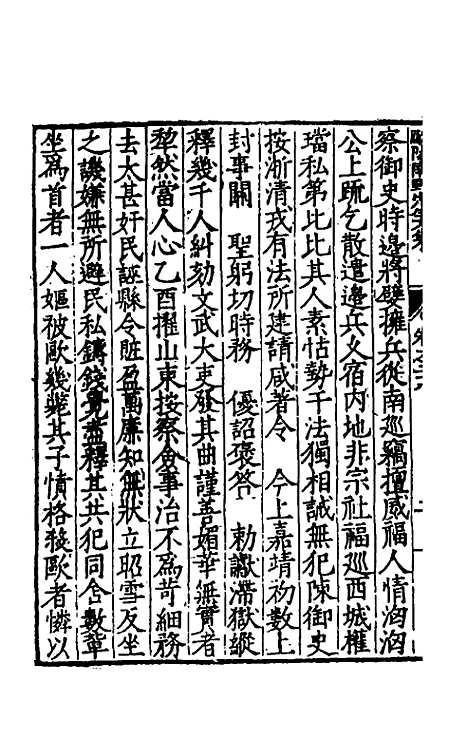 察御史時邊將嬖擁兵從南巡竊擅威福人情洶洶
公上疏乞散遣邊兵久宿内地非宗社福巡西城權
璫私第比比其人素怙勢干法獨相誡無犯陳御史
按浙清戎有法所建請咸著令　今上嘉靖初數上
封事關　聖躬切時務　優詔褒答　勅讞滯獄縱
釋幾千人糾劾文武大吏發其曲謹善媚華無實者
犂然當人心乙酉擢山東按察僉事治不爲苛細務
去太甚奸民誣縣令賍盈萬廉知無狀立昭雪反坐
之譏嫌無所避民私鑄錢覺盡釋其共犯同舍數軰
坐為首者一人嫗被歐幾斃其子憤格殺歐者憐以